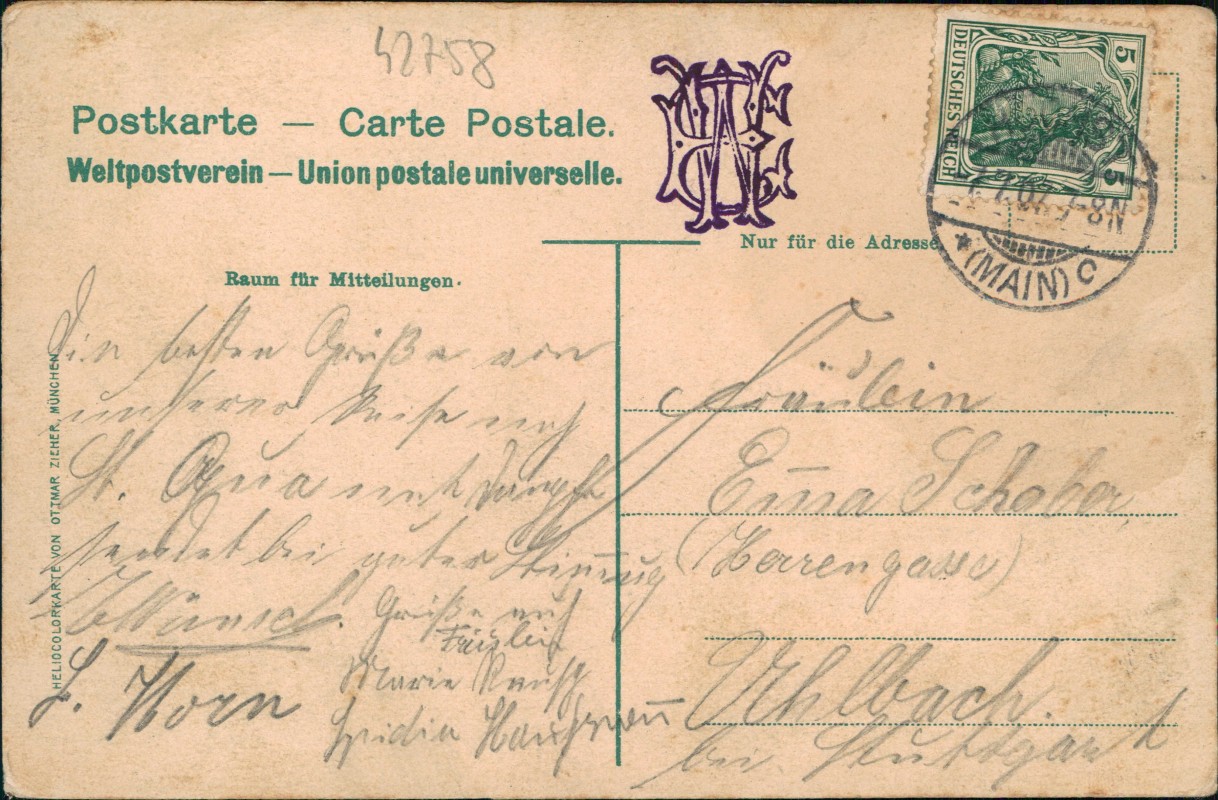 42758
Postkarte — Carte Postale.
Weltpostverein — Union postale universelle.
DEUTSCHES REICH
5
5
7-8N
*(MAIN) C
Nur für die Adresse
Raum für Mitteilungen.
Die besten Grüße von
unserer Reise nach
St.
sendet bei guter Stimmung
Grüße auch
Fräulein
L. Horn
Marie
HELIOCOLORKARTE VON OTTMAR ZIEHER, MÜNCHEN
Fräulein
Em̄a Schaber
(Herrengasse)
Uhlbach.
bei Stuttgart